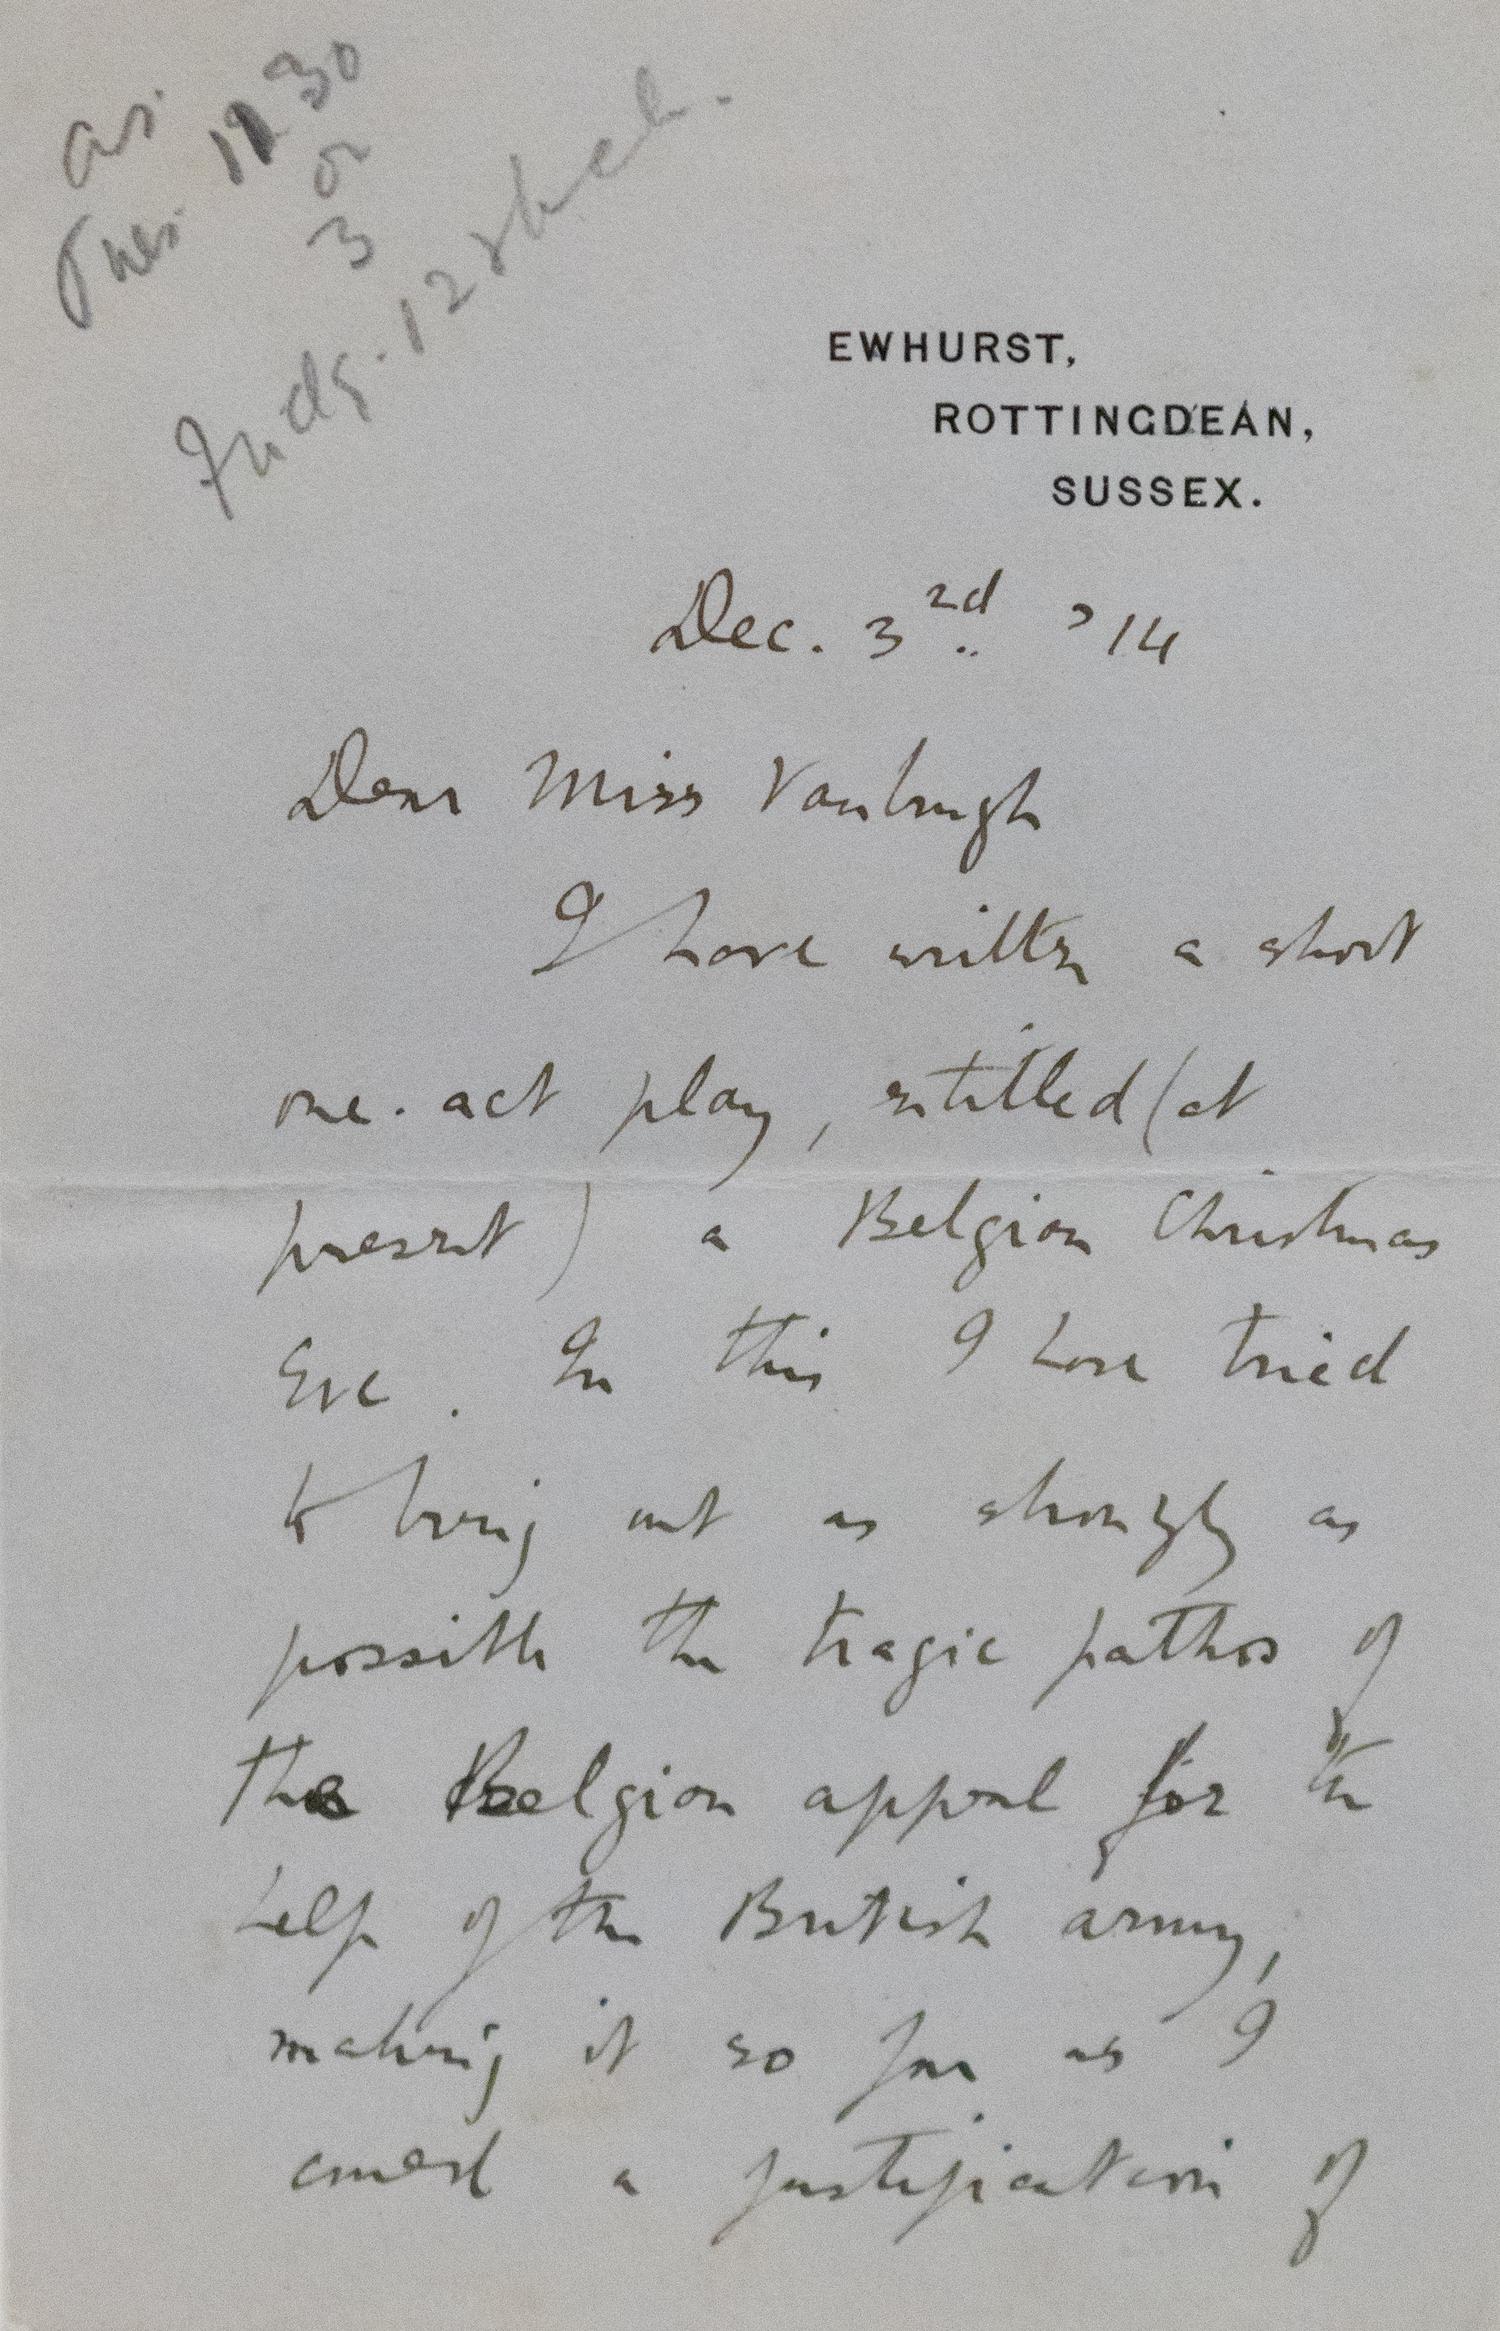 as.
Tues. 12 30
or
3
12
EWHURST,
ROTTINGDEAN,
SUSSEX.
Dec. 3rd '14
Dear Miss Vanbrugh
I have written a short
one-act play, entitled (at
present) a Belgian Christmas
Eve. In this I have tried
to bring out as strongly as
possible the tragic pathos of
the Belgian appeal for the
help of the British army,
making it so far as I
could a justification of